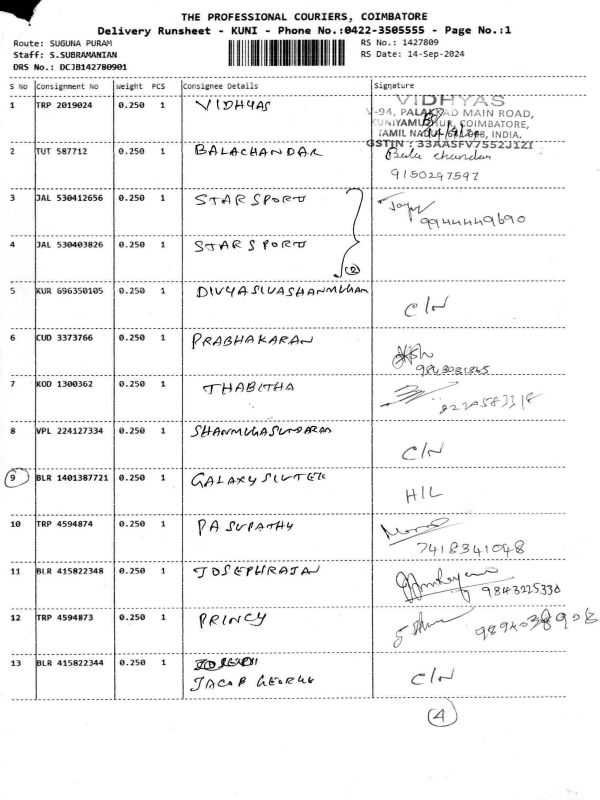 THE PROFESSIONAL COURIERS, COIMBATORE
Delivery Runsheet - KUNI - Phone No.:0422-3505555 - Page No.:1
Route: SUGUNA PURAM RS No.: 1427809
Staff: S.SUBRAMANIAN RS Date: 14-Sep-2024
DRS No.: DCJB142780901
S No Consignment No Weight PCS Consignee Details Signature
1 TRP 2019024 0.250 1 VIDHYAS
VIDHYAS
V-94, PALAKKAD MAIN ROAD,
KUNIYAMUTHUR, COIMBATORE,
TAMIL NADU, INDIA.
GSTIN : 33AASFV7552J1ZI
2 TUT 587712 0.250 1 BALACHANDAR Bala chandar
9150297597
3 JAL 530412656 0.250 1 STARSPORTJ
9944449690
4 JAL 530403826 0.250 1 STARSPORTJ
(2)
5 KUR 696350105 0.250 1 DIVYASIVASHANMUGAM C/N
6 CUD 3373766 0.250 1 PRABHAKARAN
7 KOD 1300362 0.250 1 THABITHA
8 VPL 224127334 0.250 1 SHANMUGASUNDARAM C/N
9 BLR 1401387721 0.250 1 GALAXYSIVTEK H/L
10 TRP 4594874 0.250 1 PASUPATHY
7418341048
11 BLR 415822348 0.250 1 JOSEPHRAJAN
9843225330
12 TRP 4594873 0.250 1 PRINCY
13 BLR 415822344 0.250 1
JACOB GEORGE C/N
4